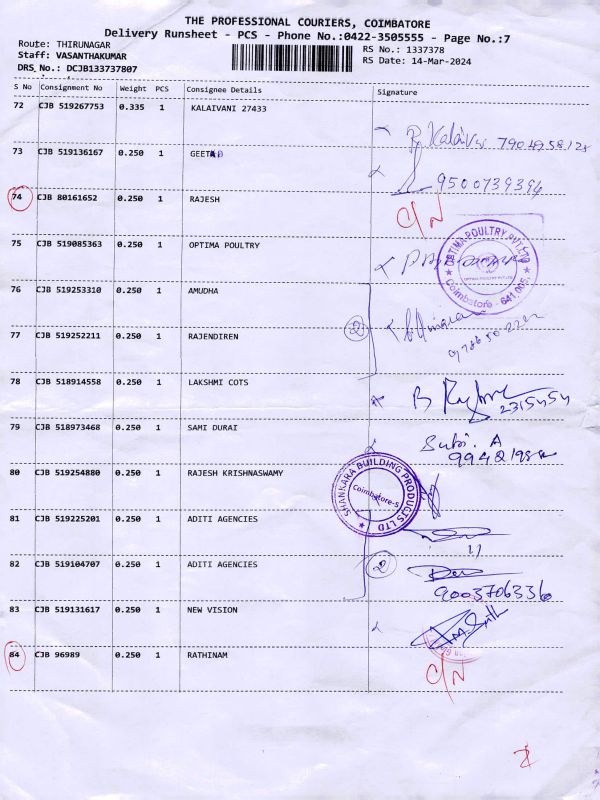 THE PROFESSIONAL COURIERS, COIMBATORE
Delivery Runsheet - PCS - Phone No.:0422-3505555 - Page No.:7
Route: THIRUNAGAR RS No.: 1337378
Staff: VASANTHAKUMAR RS Date: 14-Mar-2024
DRS No.: DCJB133737807
S No Consignment No Weight PCS Consignee Details Signature
72 CJB 519267753 0.335 1 KALAIVANI 27433
73 CJB 519136167 0.250 1
9500739394
74 CJB 80161652 0.250 1 RAJESH C/N
75 CJB 519085363 0.250 1 OPTIMA POULTRY
OPTIMA POULTRY PVT.LTD
Coimbatore - 641 005.
76 CJB 519253310 0.250 1 AMUDHA
2
77 CJB 519252211 0.250 1 RAJENDIREN
78 CJB 518914558 0.250 1 LAKSHMI COTS
79 CJB 518973468 0.250 1 SAMI DURAI Subi. A
80 CJB 519254880 0.250 1 RAJESH KRISHNASWAMY
SHANKARA BUILDING PRODUCTS LTD
Coimbatore-5
81 CJB 519225201 0.250 1 ADITI AGENCIES
82 CJB 519104707 0.250 1 ADITI AGENCIES 2
9003706336
83 CJB 519131617 0.250 1 NEW VISION
84 CJB 96989 0.250 1 RATHINAM C/N